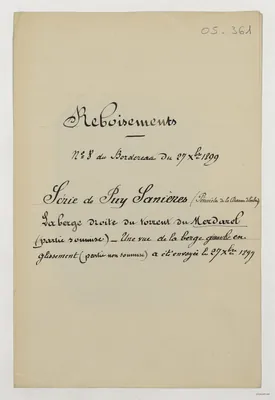 OS. 361
Reboisements
N° 8 du Bordereau du 27 Xbre 1899
Série de Puy Sanières (
La berge droite du torrent du Merdarel
(partie soumise) _ Une vue de la berge gauche en
glissement (partie non soumise) a été envoyée le 27 Xbre 1899